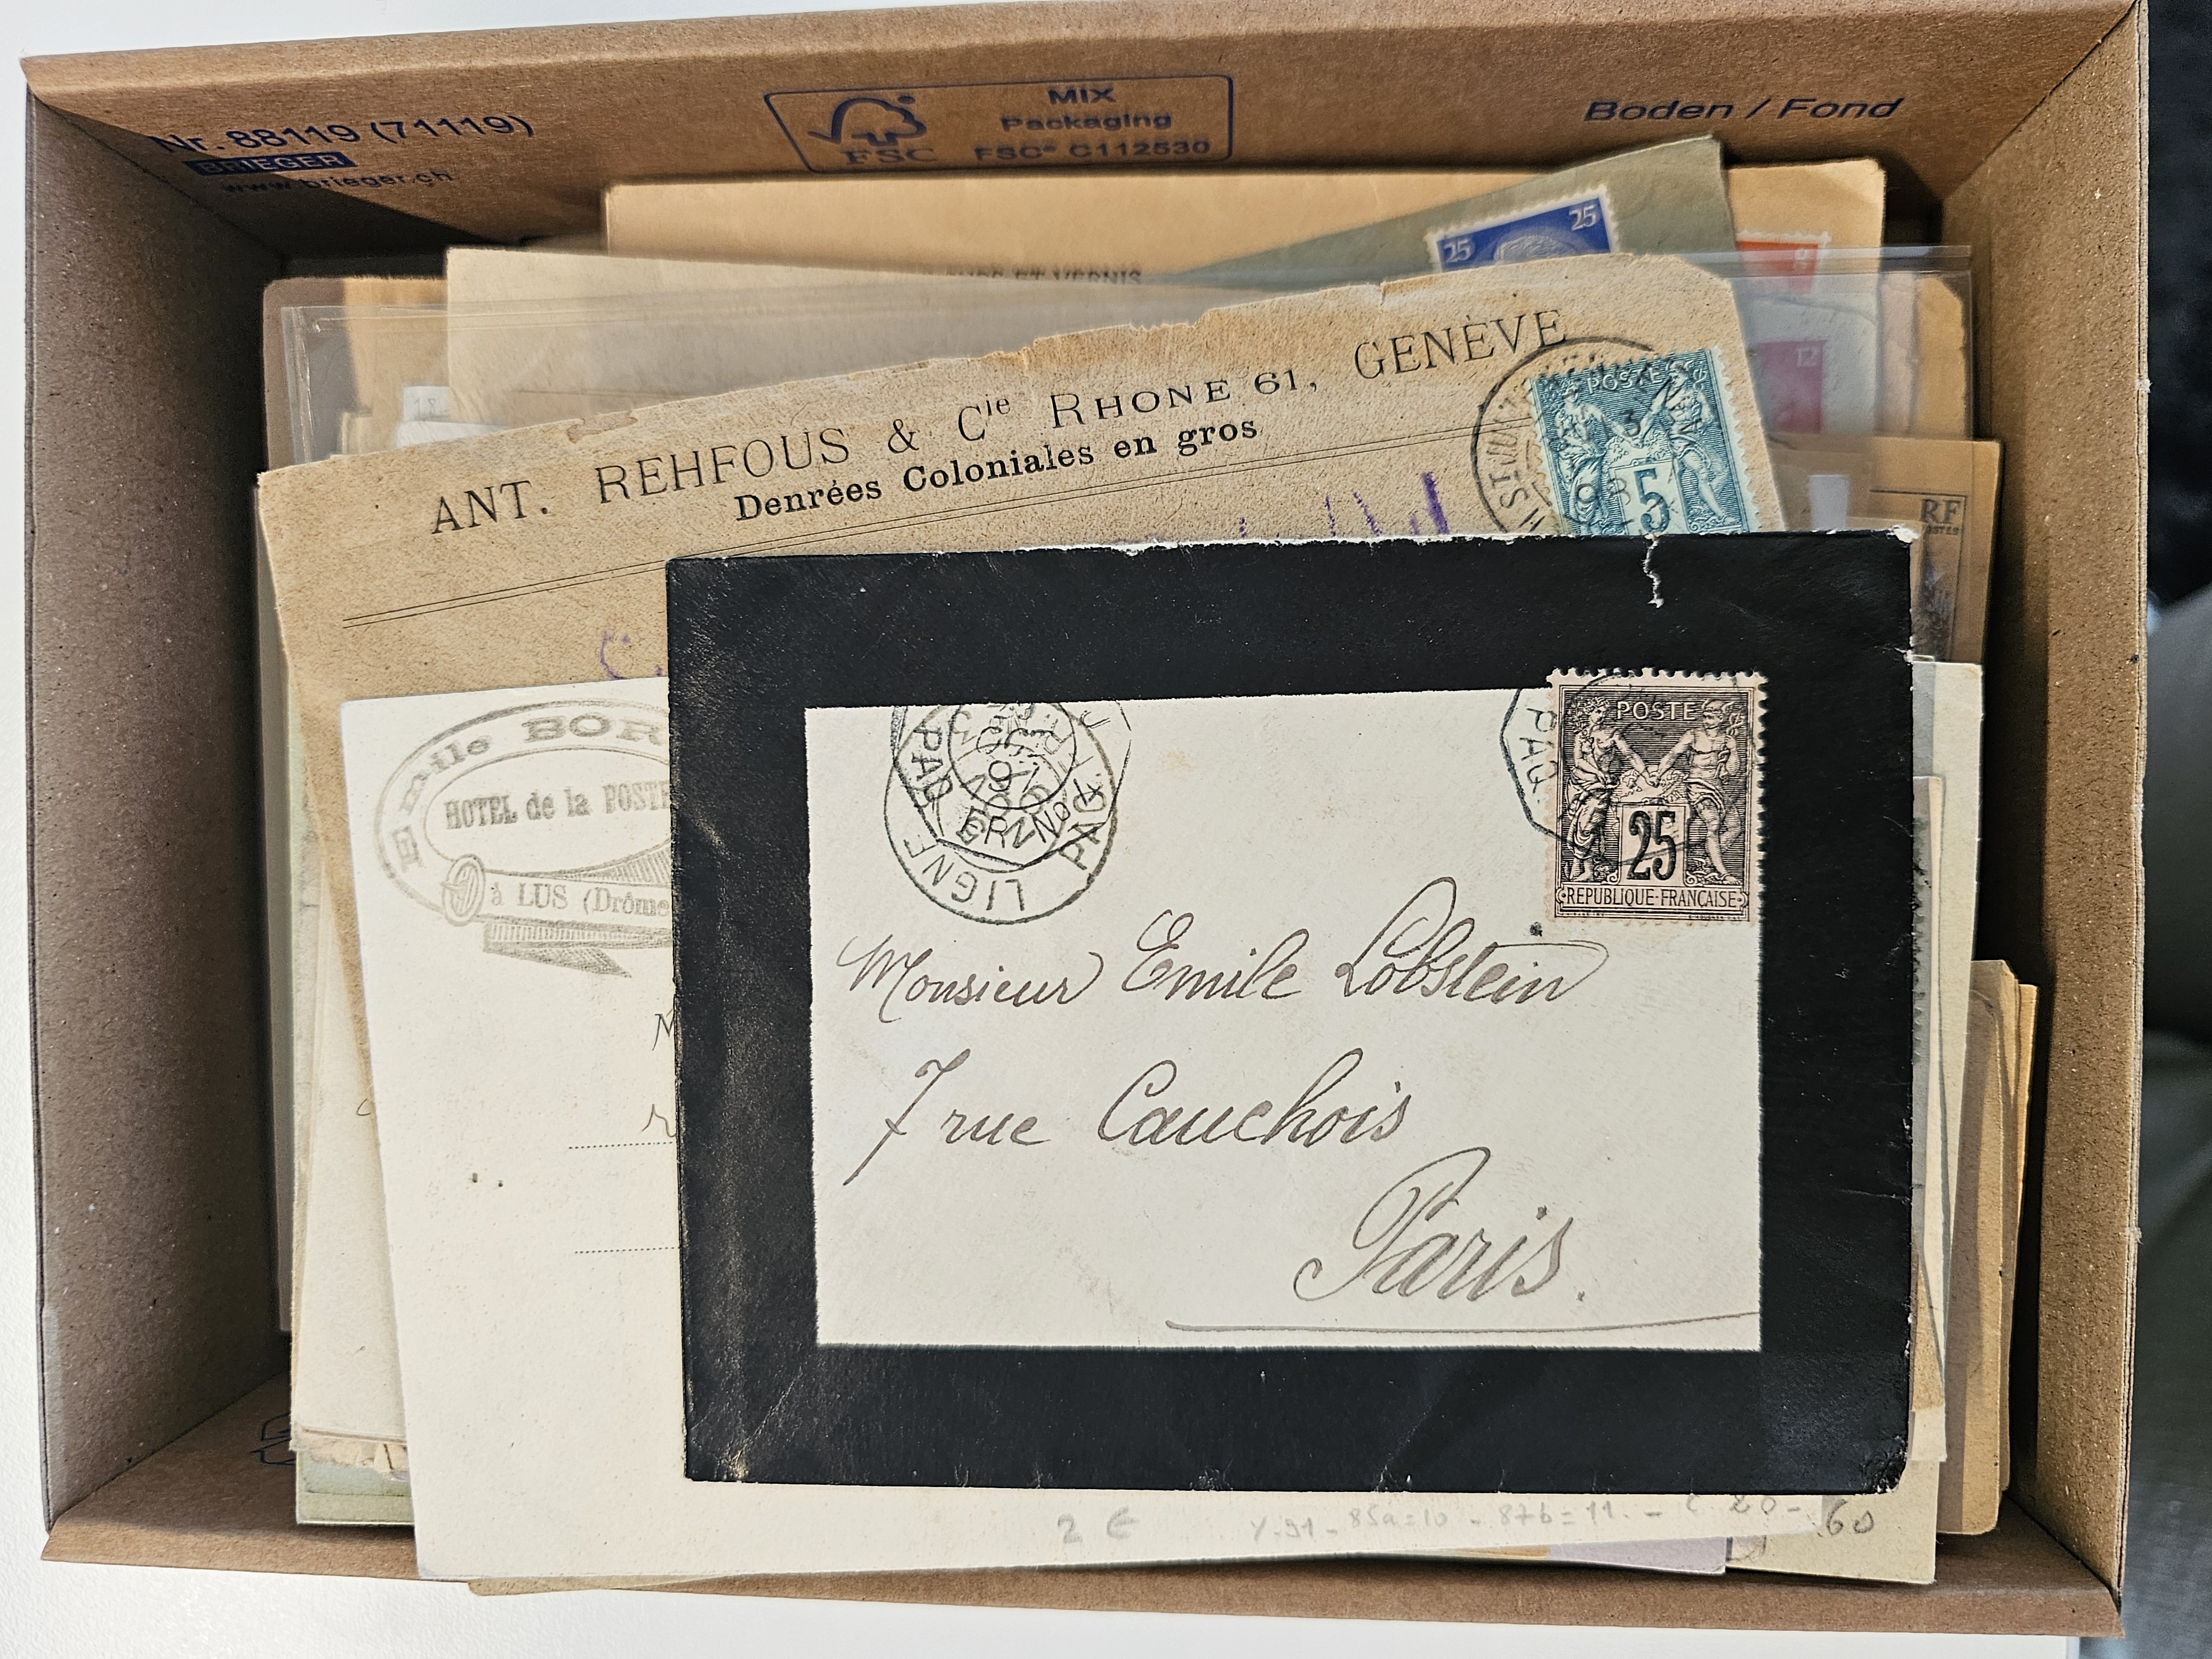 Nr. 88119 (71119)
BRIEGER
www.brieger.ch
FSC
MIX
Packaging
FSC® C112530
Boden / Fond
25 25
9
12
ANT. REHFOUS & Cie RHONE 61, GENÈVE
Denrées Coloniales en gros
POSTE
5
RF
POSTES
Emile BOR
HOTEL de la POSTE
à LUS (Drôme
LIGNE
PAQ
PAQ
POSTE
25
REPUBLIQUE FRANÇAISE
Monsieur Emile Lobstein
7 rue Cauchois
Paris.
2 €
Y. 91 - 85a=10 - 87b=11. - C. 20- 60